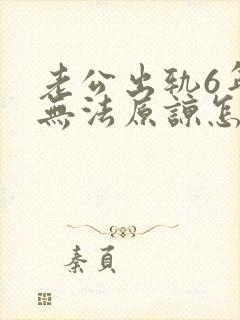 老公出轨6年
無法原諒怎
秦頁